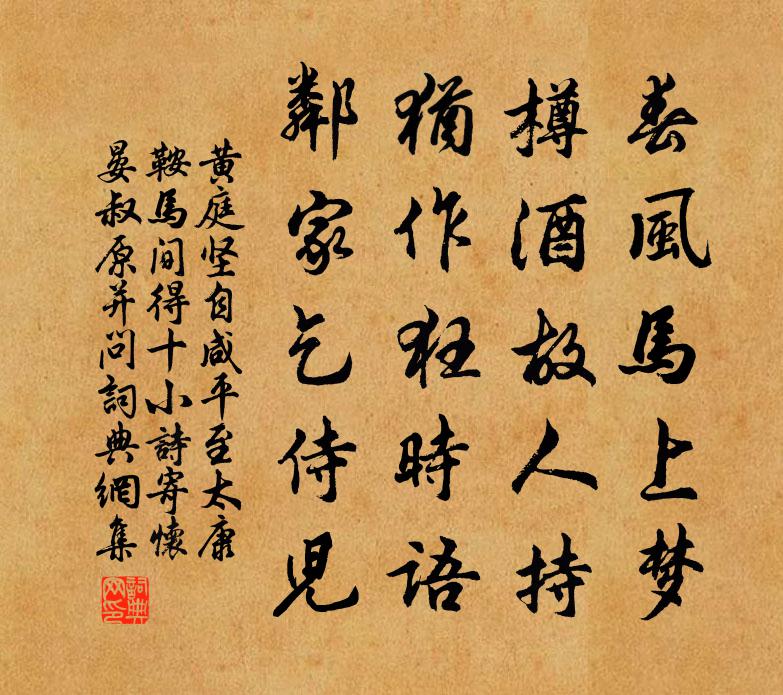 春風馬上梦
樽酒故人持
猶作狂時語
鄰家乞侍児
黄庭坚自咸平至太康
鞍馬间得十小詩寄懷
晏叔原并问詞典網集
詞典網印